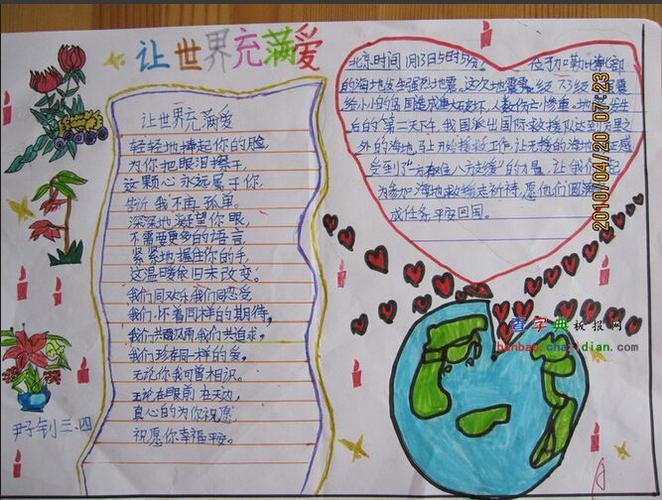 让世界充满爱
让世界充满爱
轻轻地捧起你的脸,
为你把眼泪擦干,
这颗心永远属于你,
告诉我不再孤单。
深深地凝望你眼,
不需要更多的语言,
紧紧地握住你的手,
这温暖依旧未改变。
我们同欢乐,我们同忍受
我们怀着同样的期待,
我们共风雨,我们共追求,
我们珍存同一样的爱。
无论你我可曾相识。
无论在眼前在天边,
真心的为你祝愿
祝愿你幸福平安。
尹子钊 三、四
北京时间1月13日5时5分! 位于加勒比北部
的海地发生强烈地震。这次地震震级7.3级
给小小的岛国造成重大破坏,人数伤亡惨重。地发生
后的第二天下午,我国派出国际救援队达到万里之
外的海地,马上开始援救工作,让无援的海地
受到了“一方有难八方支援”的力量,让我们一起
为参加海地救援志祈祷,愿他们圆满
成任务,平安回国。
2010/04/20 07:23
查字典 板报网
banbao.chazidian.com